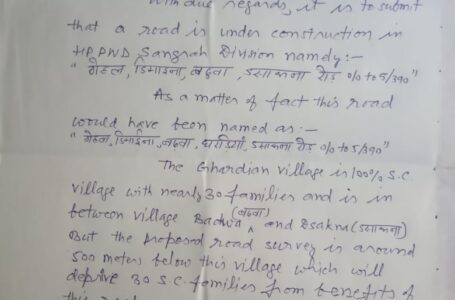 With due regards, it is to submit
that a road is under construction in
HPPWD Sangrah Division namely:-
" रोड 0/0 to 5/390"
As a matter of fact this road
would have been named as:-
" रोड 0/0 to 5/390"
The Ghardian village is 100% S.C.
village with nearly 30 families and is in
between village Badwa (बढवा) and Dsakna (डसाकना)
But the proposed road survey is around
500 meters below this village which will
deprive 30 S.C. families from benefits of
this road